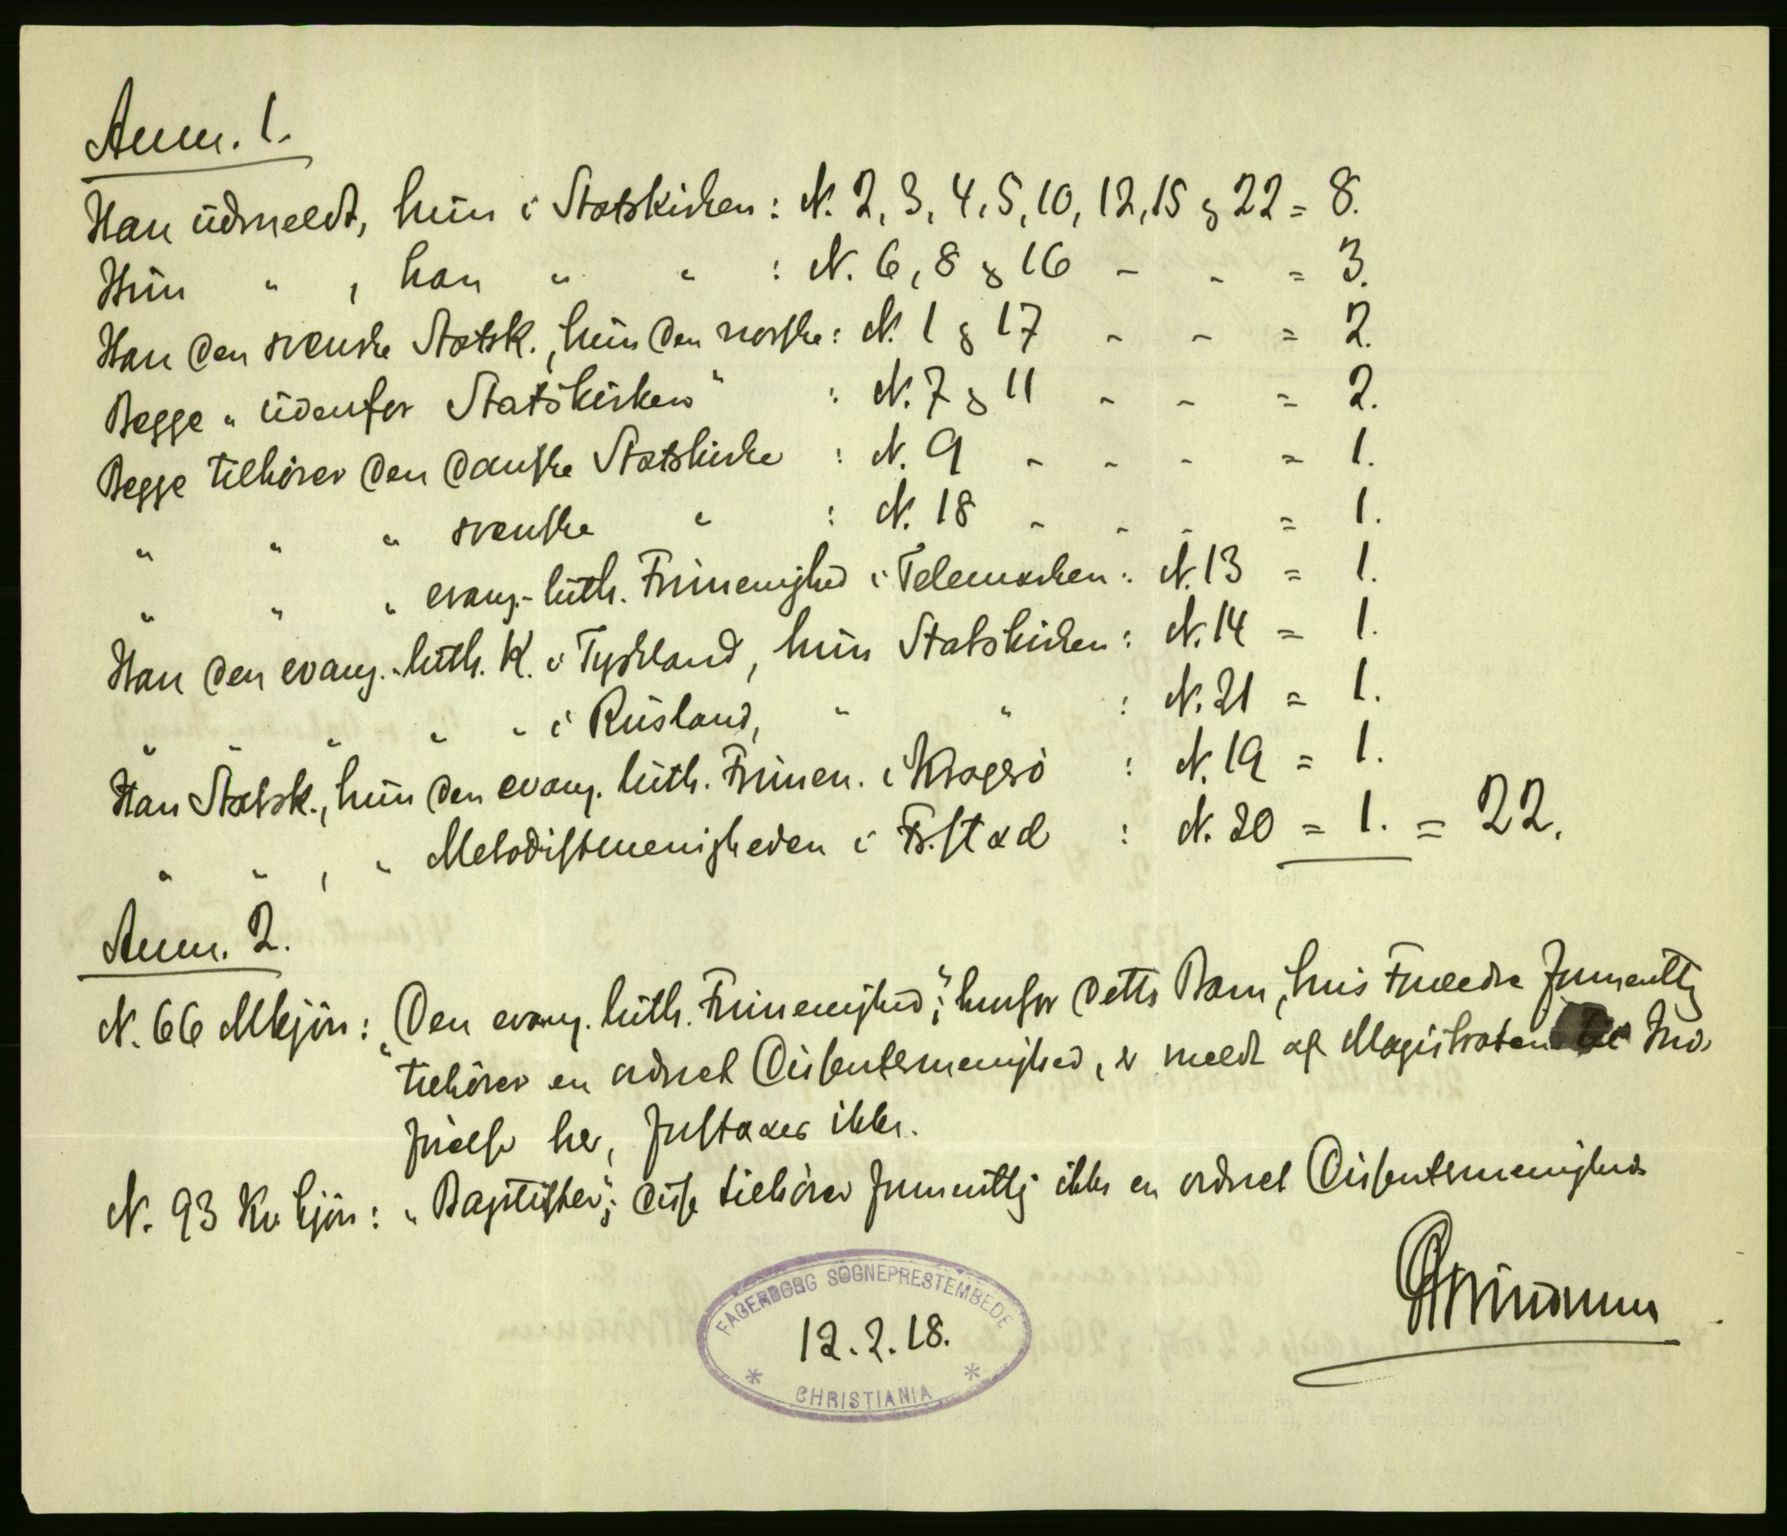 Anm. 1.
Han udmeldt, hun i Statskirken: N. 2, 3, 4, 5, 10, 12, 15 & 22 = 8.
Hun " , han " " : N. 6, 8 & 16 - - = 3.
Han den svenske Statsk., hun den norske: N. 1 & 17 - - = 2.
Begge "udenfor Statskirken" : N. 7 & 11 - - = 2.
Begge tilhører den danske Statskirke : N. 9 - - - = 1.
" " " svenske " : N. 18 - - - = 1.
" " " evang.-luth. Frimenighed i Telemarken: N. 13 = 1.
Han den evang.-luth. K. i Tyskland, hun Statskirken: N. 14 = 1.
" " " " " i Rusland, " " : N. 21 = 1.
Han Statsk., hun den evang. luth. Frimen. i Kragerö : N. 19 = 1.
" " , " Metodistmenigheden i Fr.stad : N. 20 = 1. = 22.
Anm. 2.
N. 66 Mkjön: "Den evang. luth. Frimenighed"; hvorfor dette Barn, hvis Forældre
tilhører en ordnet Dissentermenighed, er meldt af Magistraten
her, ikke.
N. 93 Kv kjön: "Baptister"; disse tilhører ikke en ordnet Dissentermenighed
FAGERBORG SOGNEPRESTEMBEDE
12.2.18.
* CHRISTIANIA *